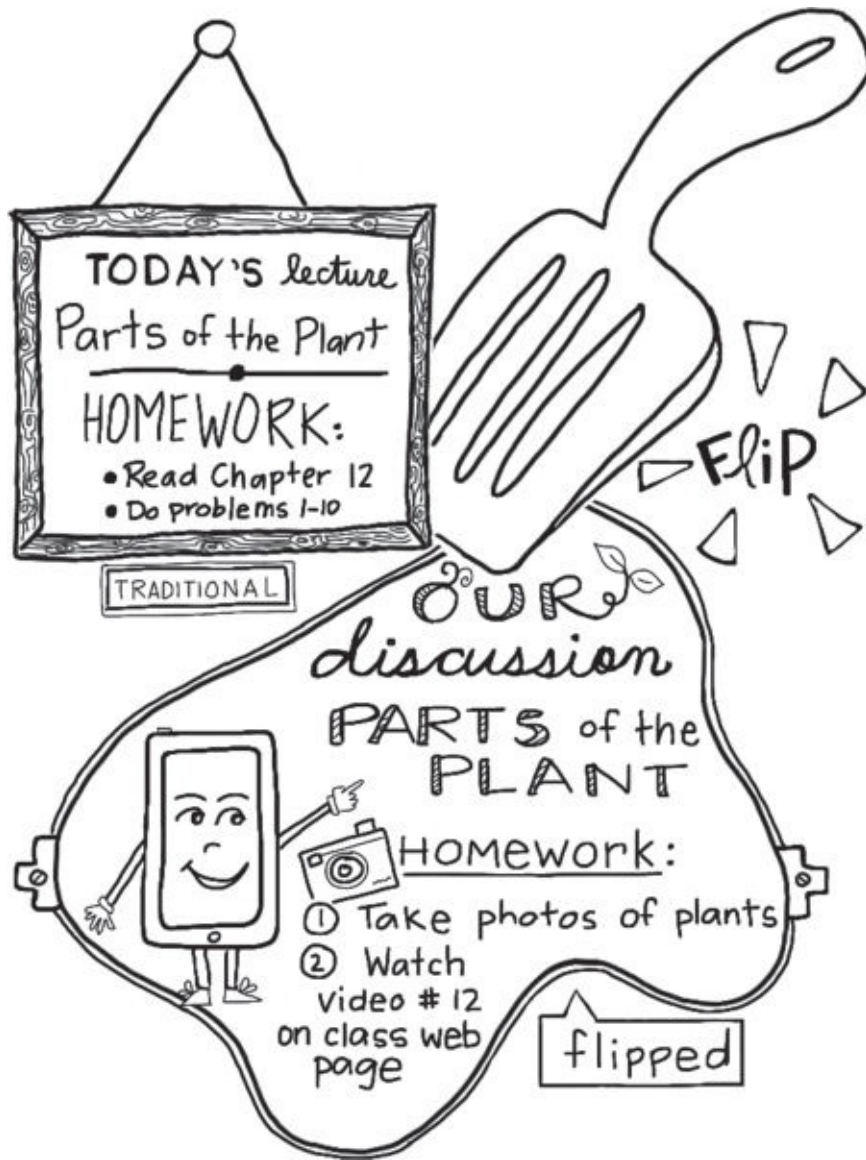 TODAY'S lecture
Parts of the Plant
HOMEWORK:
• Read Chapter 12
• Do problems 1-10
TRADITIONAL
FliP
OUR
discussion
PARTS of the
PLANT
HOMEWORK:
① Take photos of plants
② Watch
video # 12
on class web
page
flipped